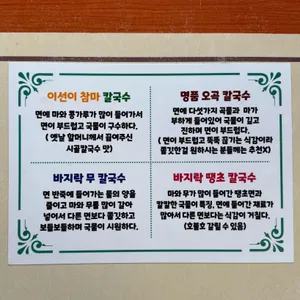 이선이 참마 칼국수
면에 마와 콩가루가 많이 들어가서
면이 부드럽고 국물이 구수하다.
( 옛날 할머니께서 끓여주신
시골칼국수 맛)
명품 오곡 칼국수
면에 다섯가지 곡물과 마가
부하게 들어있어 국물이 깊고
진하며 면이 부드럽다.
( 면이 부드럽고 뚝뚝 끊기는 식감이라
쫄깃한걸 원하시는 분들께는 추천X)
바지락 무 칼국수
면 반죽에 들어가는 물의 양을
줄이고 마와 무를 많이 갈아
넣어서 다른 면보다 쫄깃하고
보들보들하며 국물이 시원하다.
바지락 땡초 칼국수
마와 무가 많이 들어간 땡초면과
칼칼한 국물이 특징, 면에 들어간 재료가
많아서 다른면보다는 식감이 거칠다.
(호불호 갈릴 수있음)